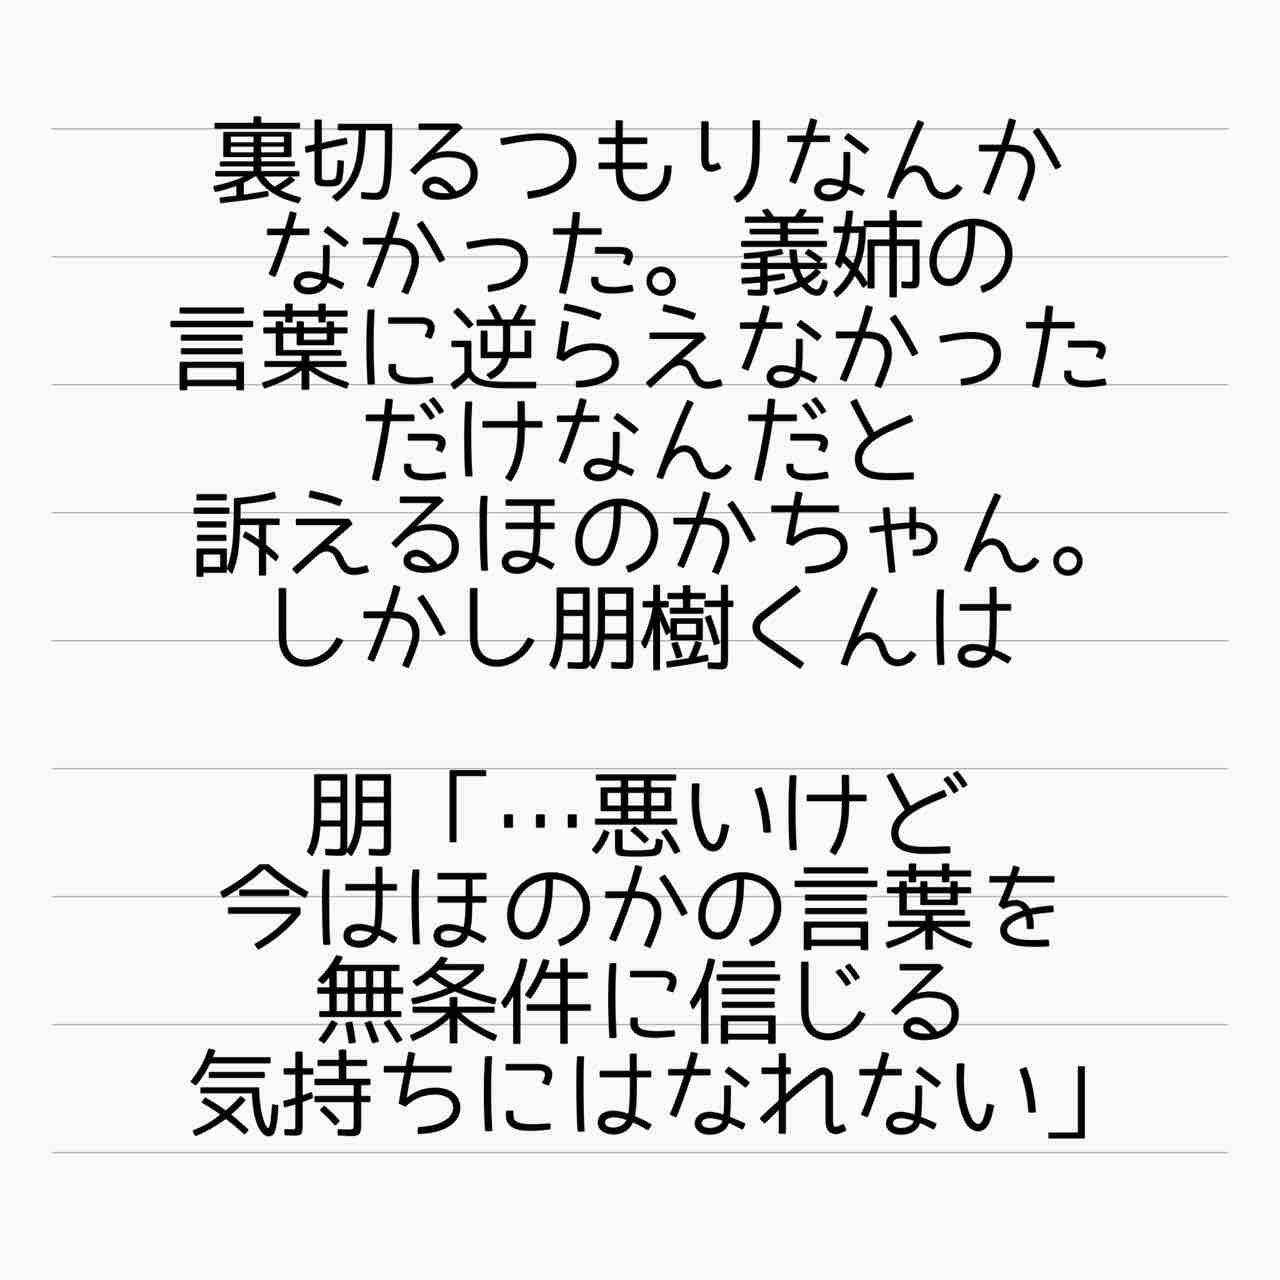 裏切るつもりなんか
なかった。義姉の
言葉に逆らえなかった
だけなんだと
訴えるほのかちゃん。
しかし朋樹くんは
朋「…悪いけど
今はほのかの言葉を
無条件に信じる
気持ちにはなれない」